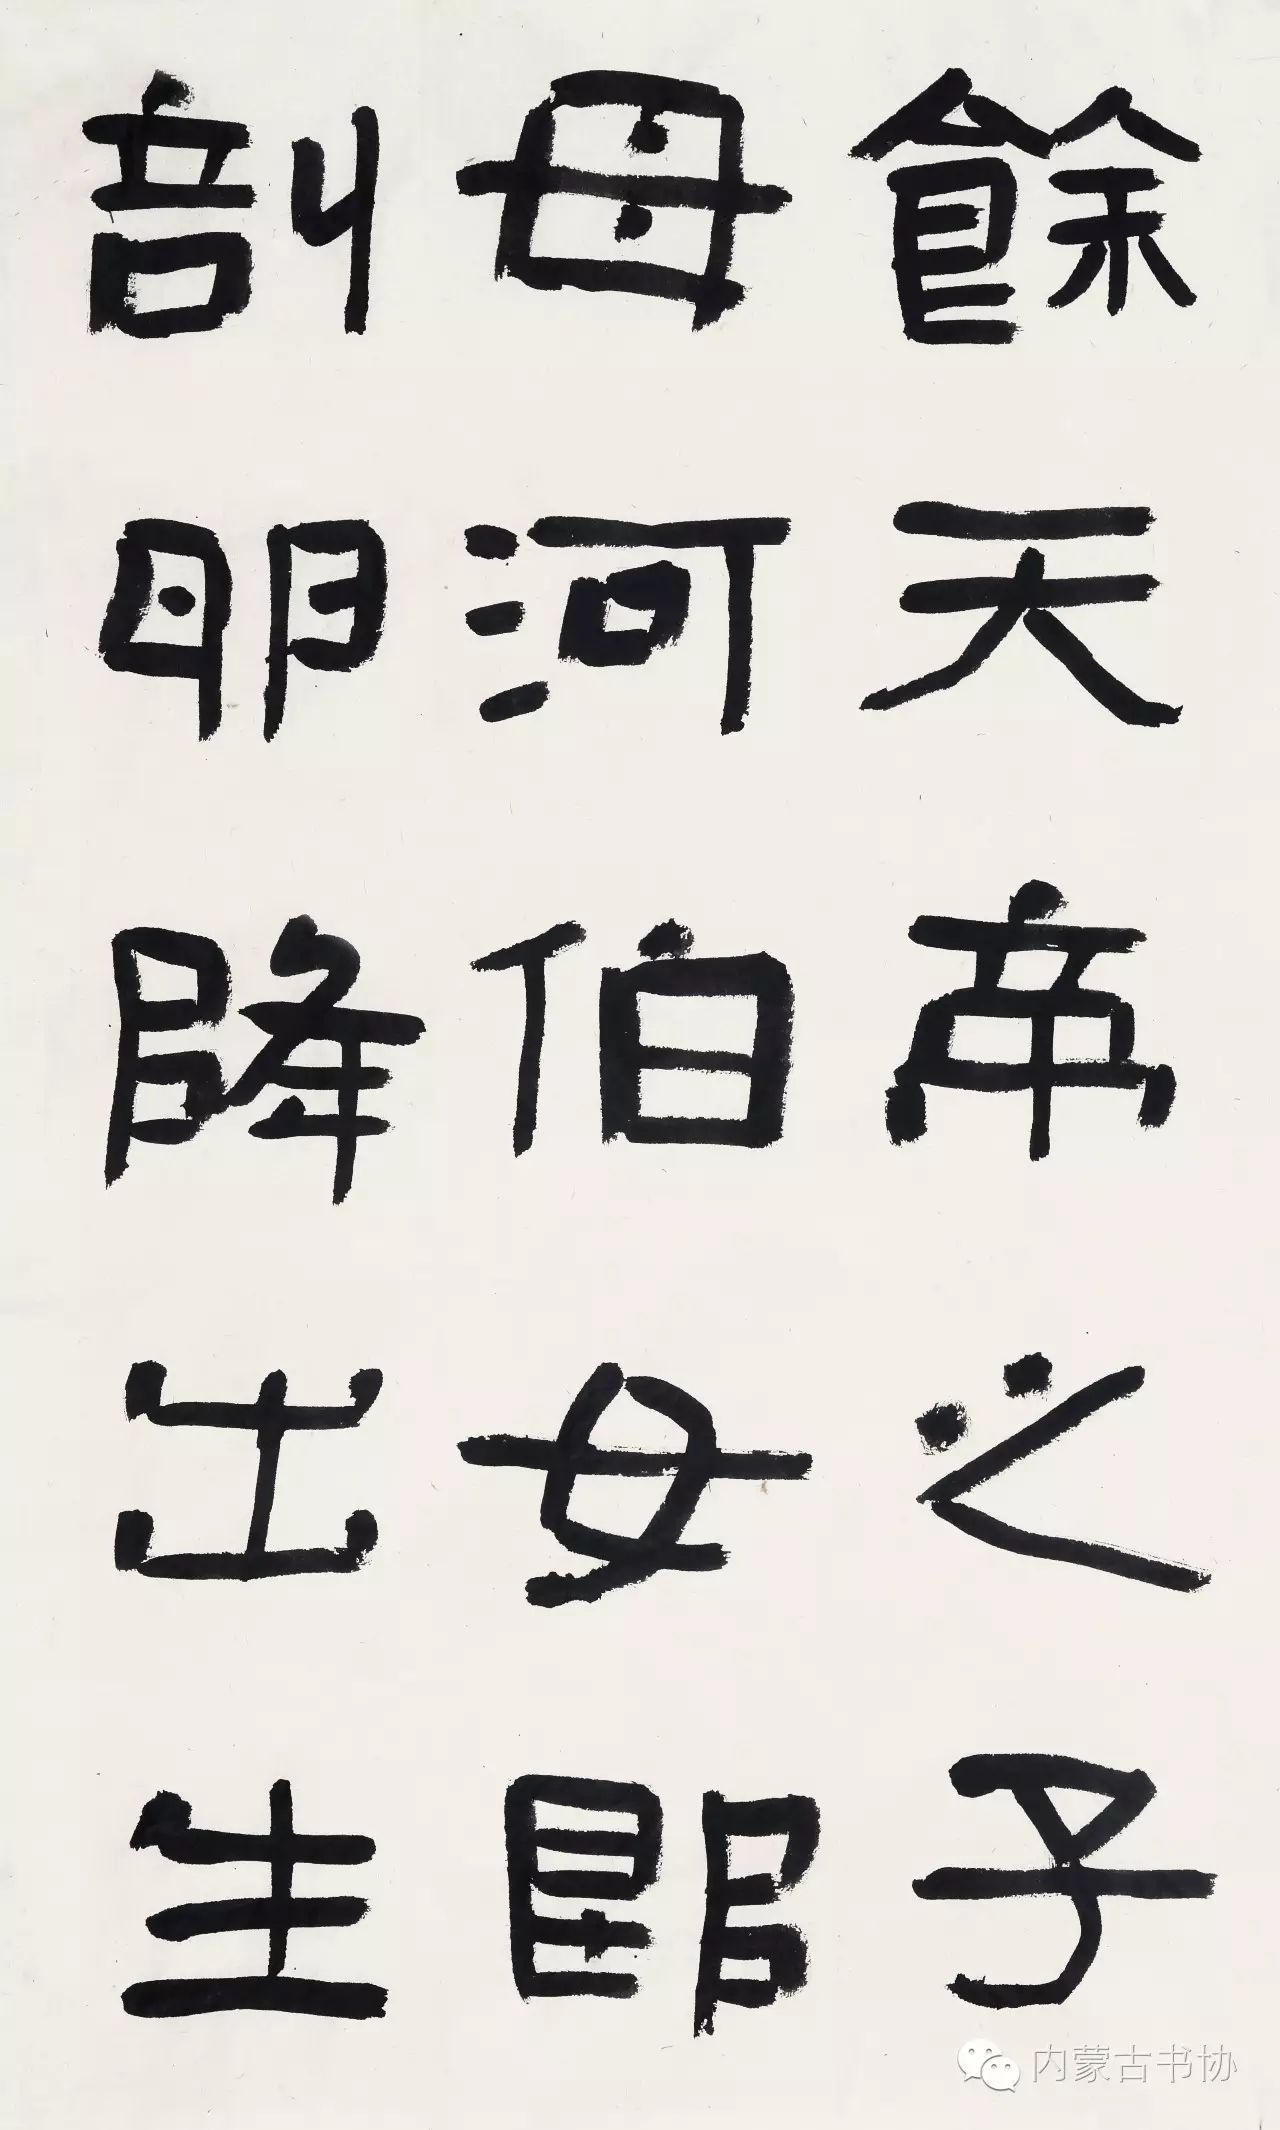 餘天帝之子
母河伯女郎
剖卵降出生
内蒙古书协